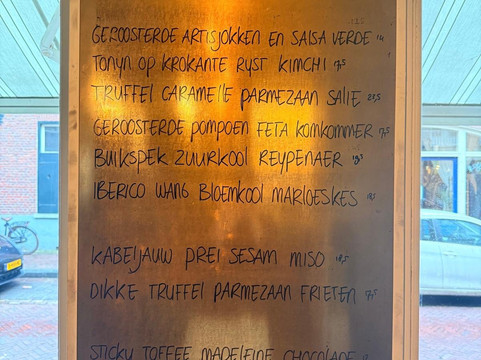 GEROOSTERDE ARTISJOKKEN EN SALSA VERDE 14
TONYN OP KROKANTE RYST KIMCHI 17,5
TRUFFEL CARAMELLE PARMEZAAN SALIE 22,5
GEROOSTERDE POMPOEN FETA KOMKOMMER 17,5
BUIKSPEK ZUURKOOL REYPENAER
IBERICO WANG BLOEMKOOL MARLOESKES
KABELJAUW PREI SESAM MISO 18,5
DIKKE TRUFFEL PARMEZAAN FRIETEN 7,5
STICKY TOFFEE MADELEINE CHOCOLADE